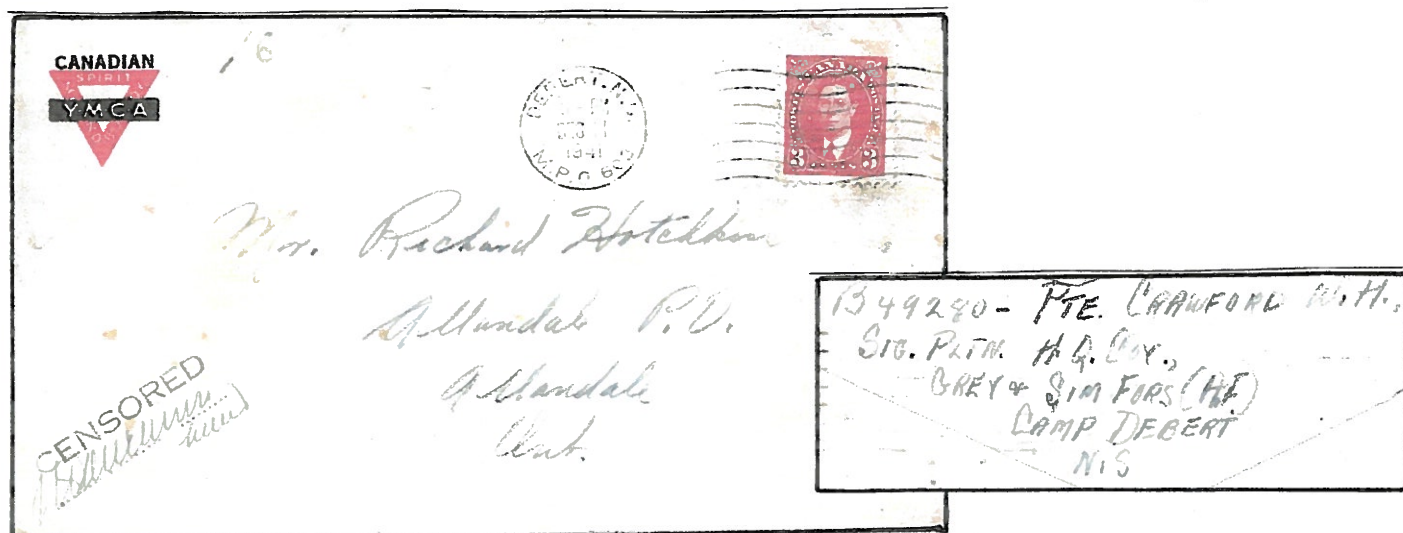 CANADIAN
SPIRIT
YMCA
DEBERT. N.S.
1941
M.P.O. 603
CANADA
3 3
Mr. Richard Hotchkiss
Allandale P.O.
Allandale
Ont.
CENSORED
B49280 - PTE. CRAWFORD W.H.,
SIG. PLTN. H.Q. COY.,
GREY & SIM FORS (AF)
CAMP DEBERT
N.S